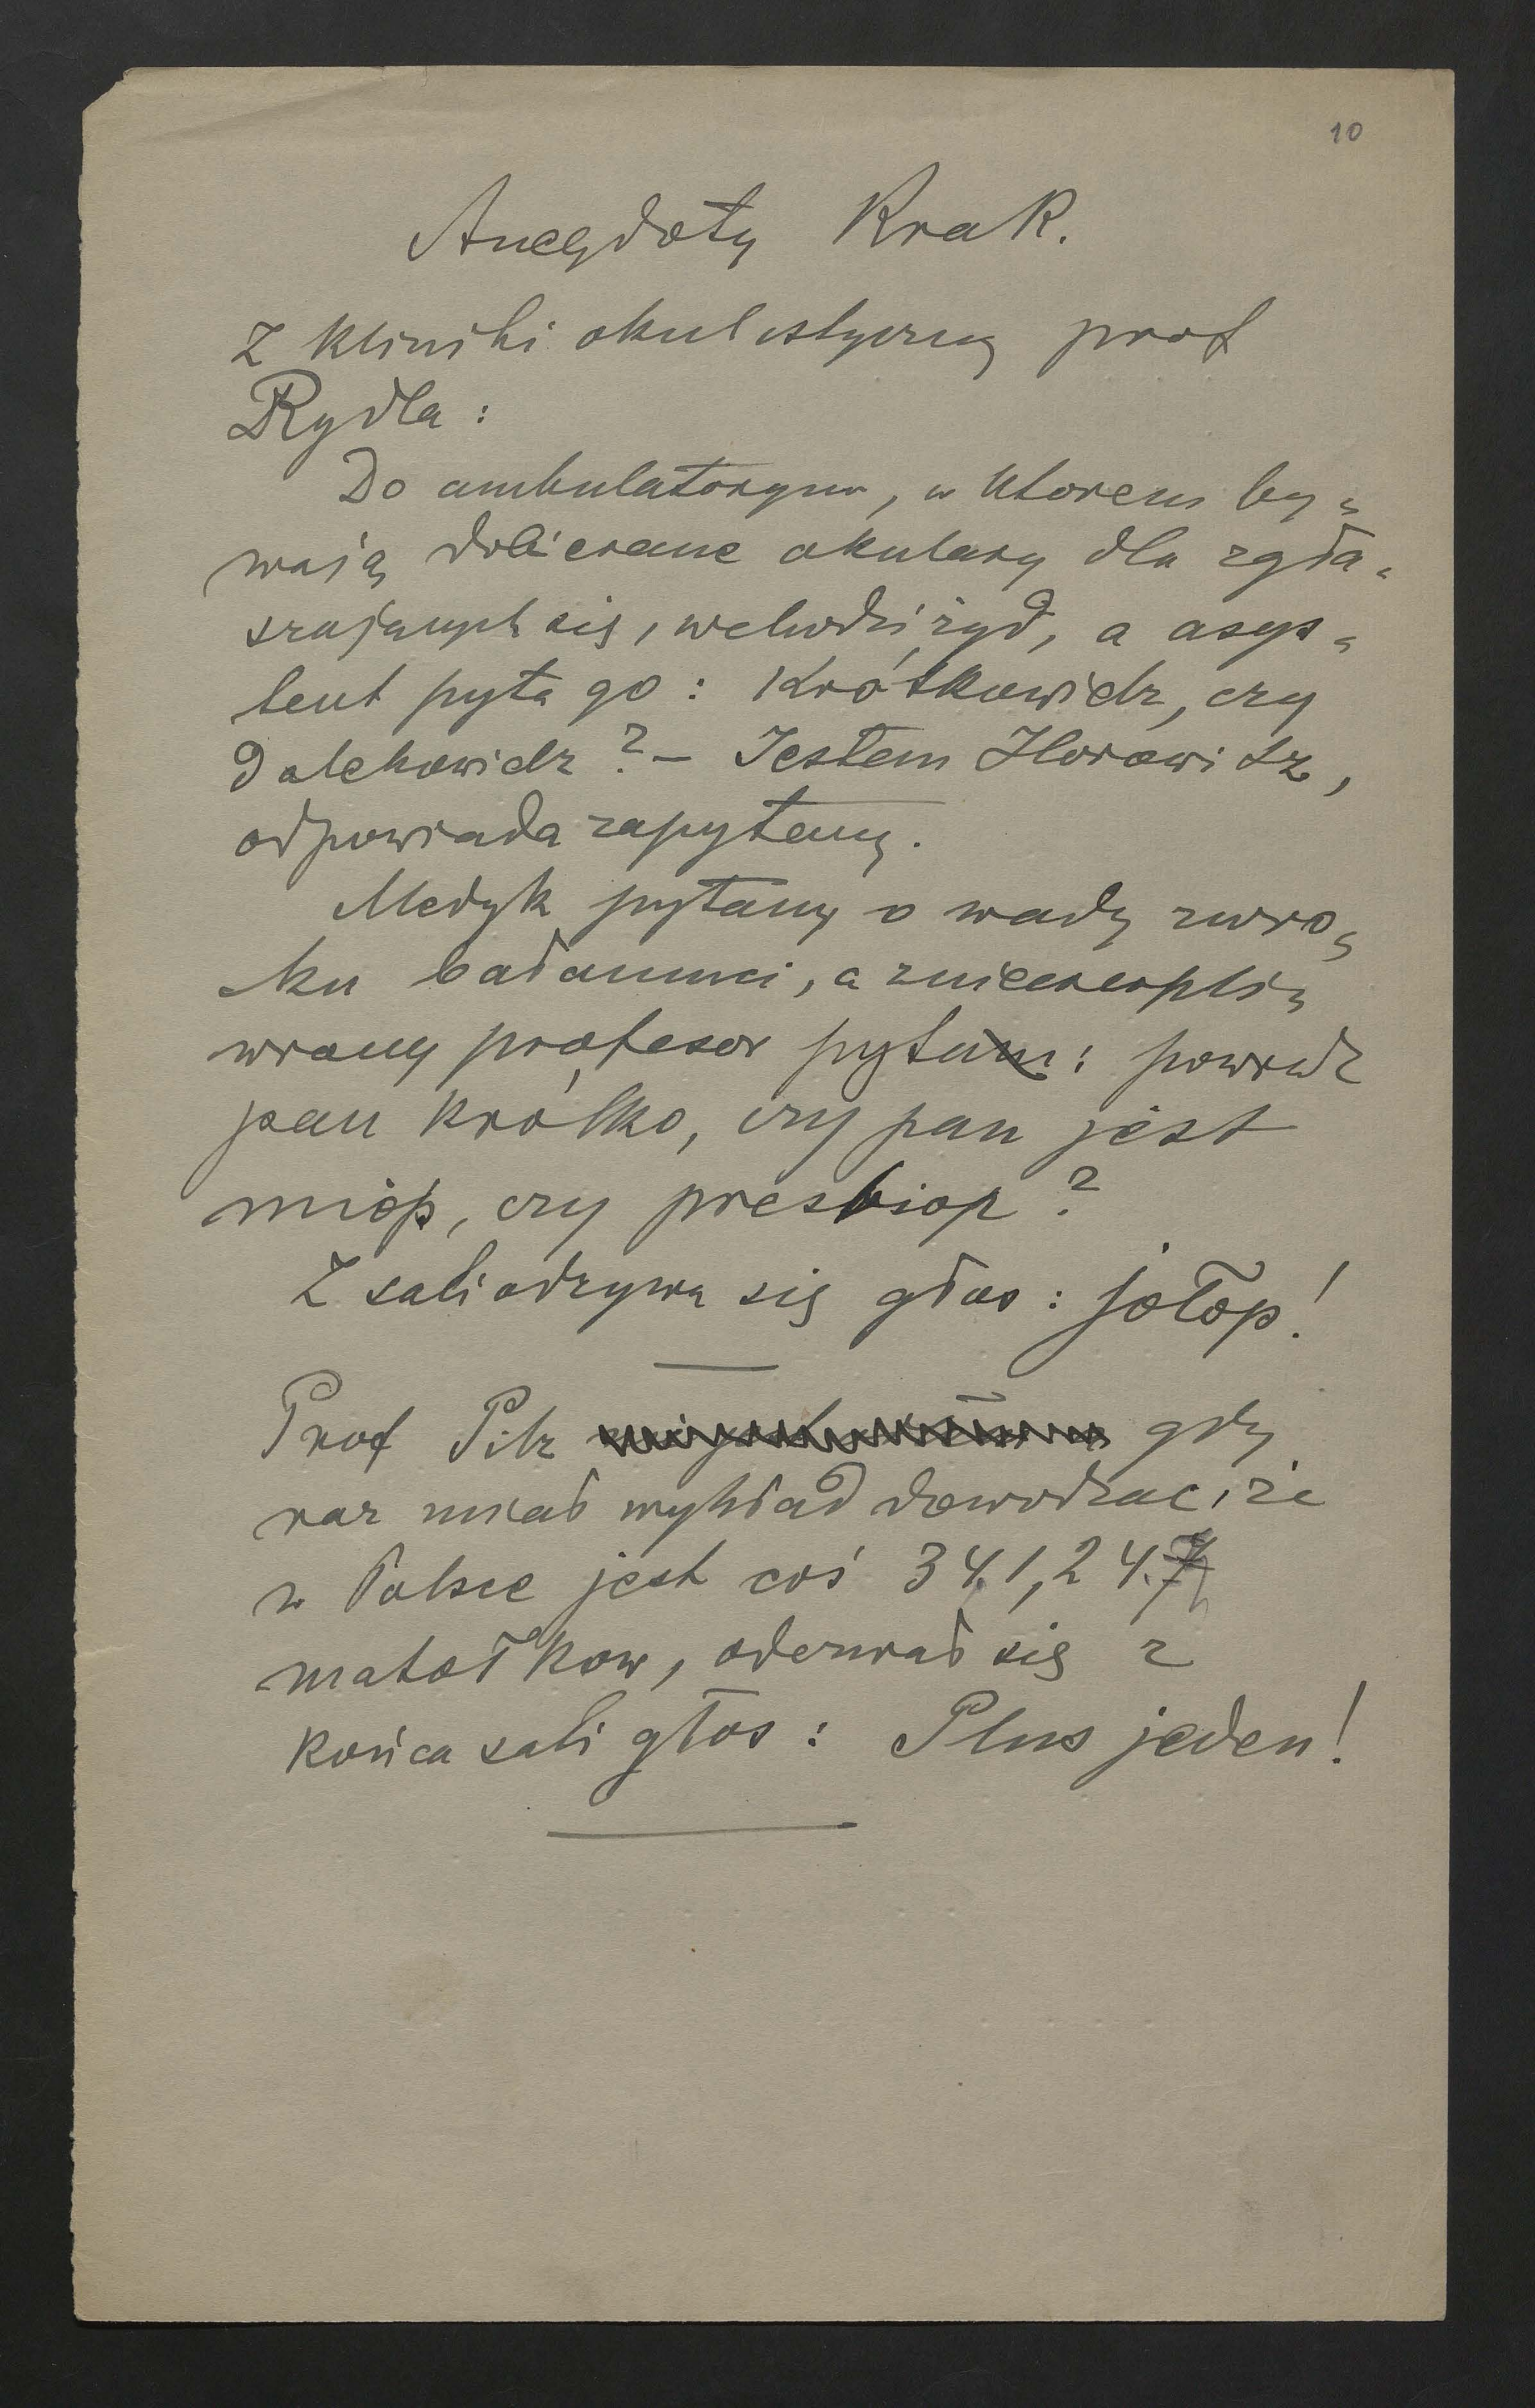 10
Anegdoty Krak.
Z kliniki okulistyczny prof
Rydla:
Do ambulatoryum, w ktorem by-
wają dobierane okulary dla zgła-
szających się, wchodzi żyd, a asys-
tent pyta go: Krótkowidz, czy
Dalekowidz? – Jestem Horowitz,
odpowiada zapytany.
Medyk pytany o wady wzro-
ku bałamuci, a zniecierpli-
wiony profesor pyta: powiedz
pan krótko, czy pan jest
miop, czy presbiop?
Z sali odzywa się głos: jołop!
Prof Pilz gdy
raz miał wykład dowodząc, że
w Polsce jest coś 341,24
matołkow, oderwał się z
końca sali głos: Plus jeden!